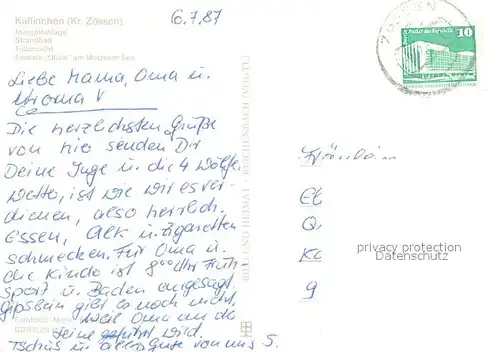 Kallinchen (Kr. Zossen)
Minigolfanlage
Strandbad
Teilansicht
Eisdiele "Olivia" am Motzener See
6.7.87
ZOSSEN
Palast der Republik
10
Liebe Mama, Oma u.
Uroma!
Die herzlichsten Grüße
von hie senden Dir
Deine Inge u. die 4 Wölfe.
Wetter ist wie wir es ver-
dienen, also herrlich.
Essen, Alk u. Zigaretten
schmecken. Für Oma u.
die Kinder ist 8⁰⁰ Uhr Früh-
sport u. Baden angesagt.
Gipsbein gibt es noch nicht,
weil Oma an de
Leine geführt wird.
Tschüs u. alles Gute von uns 5.
BILD UND HEIMAT REICHENBACH (VOGTL)
Fräulein
El
Q.
Kc
9
privacy protection
Datenschutz